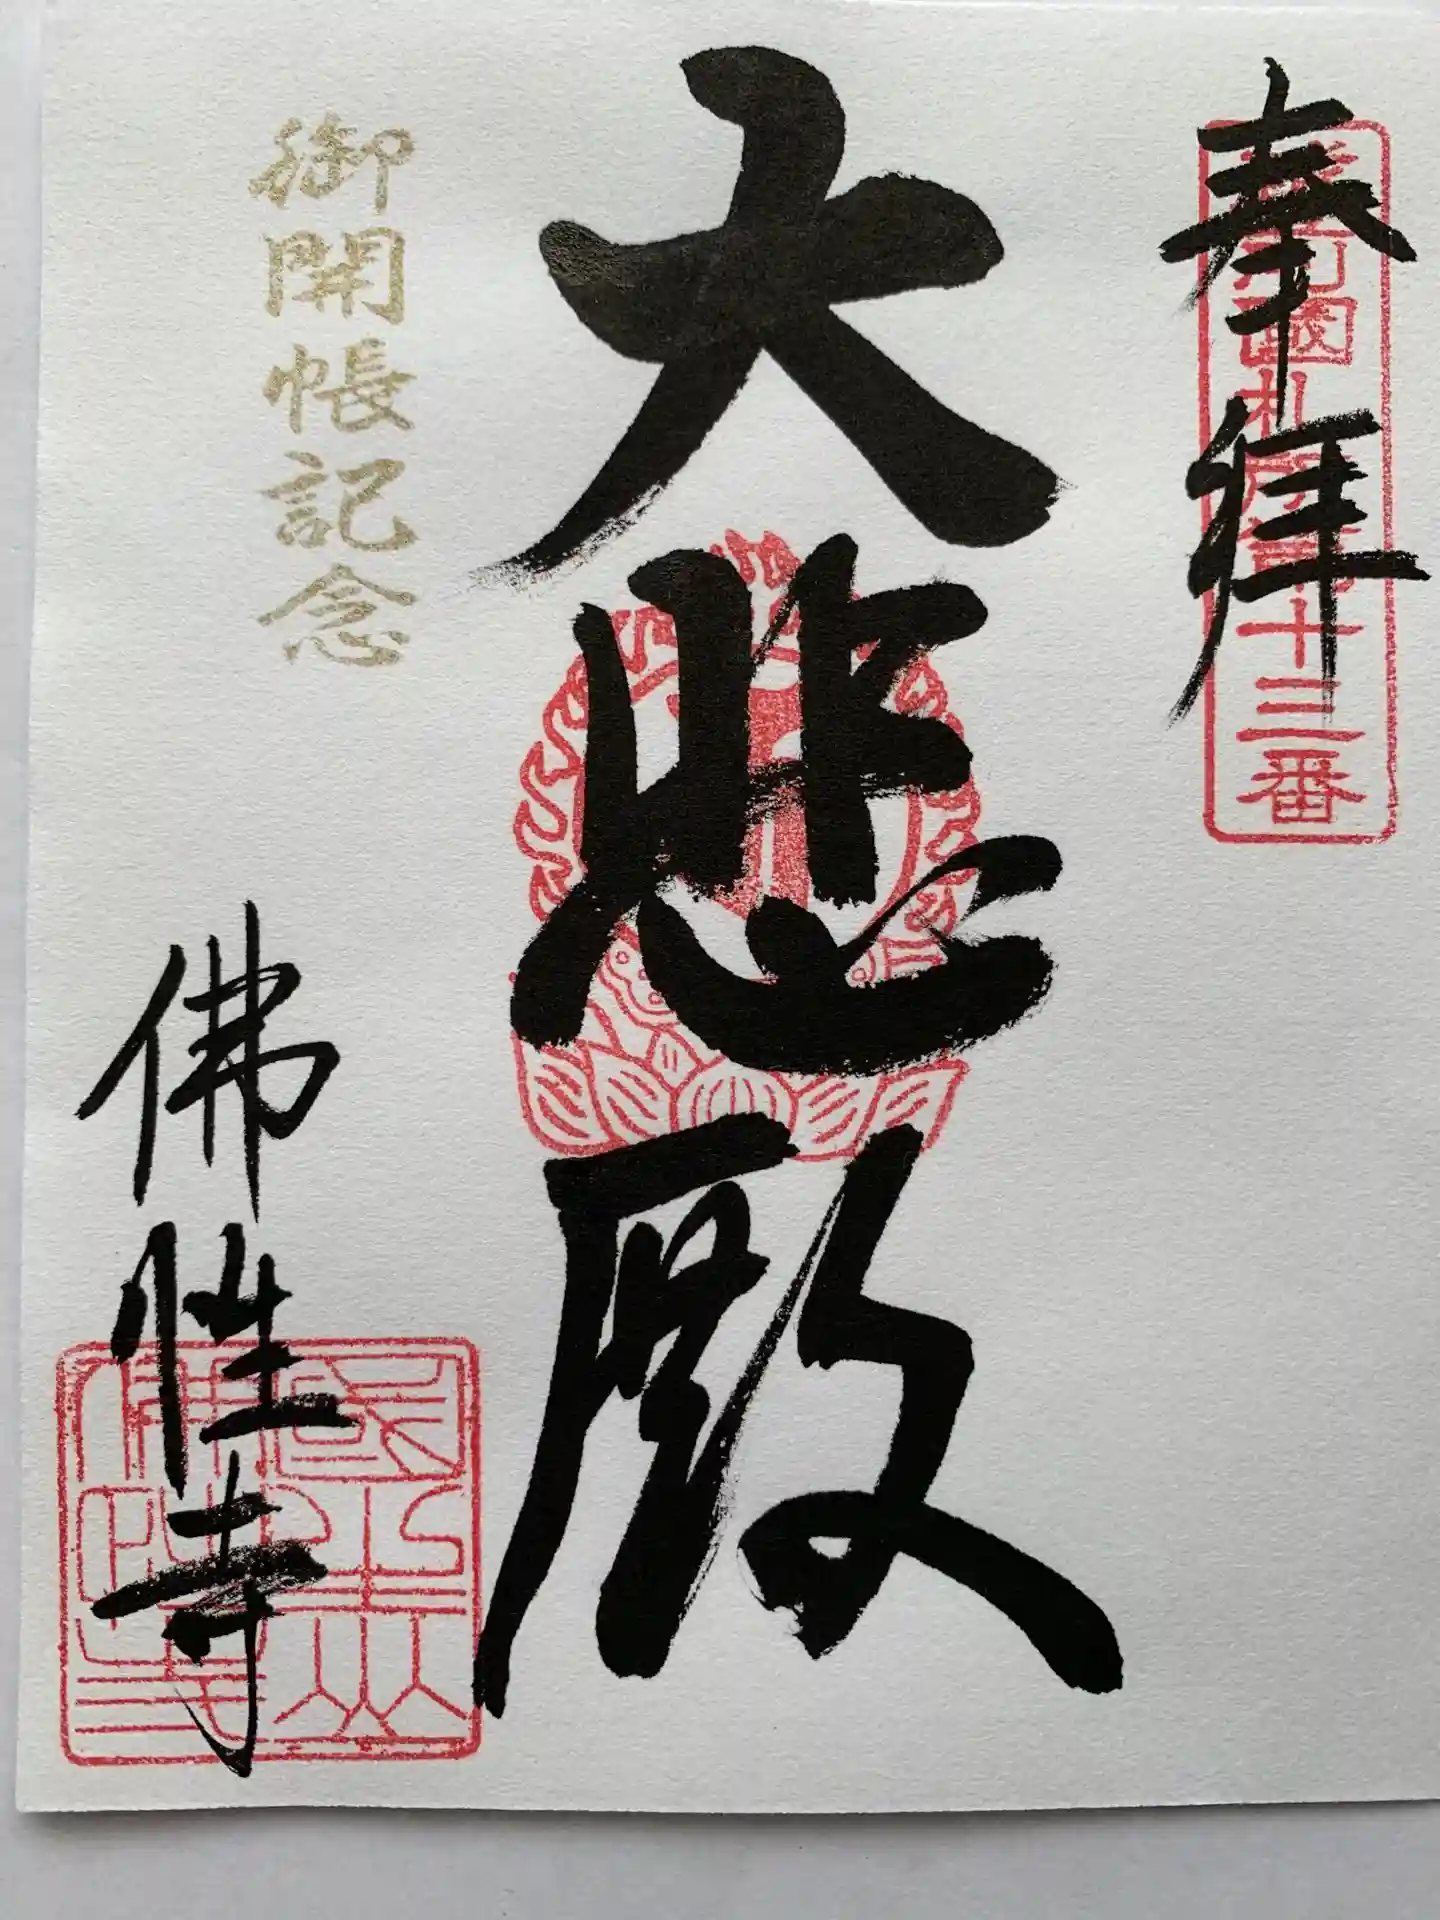 奉拝
國札所第十三番
大悲殿
御開帳記念
佛性寺